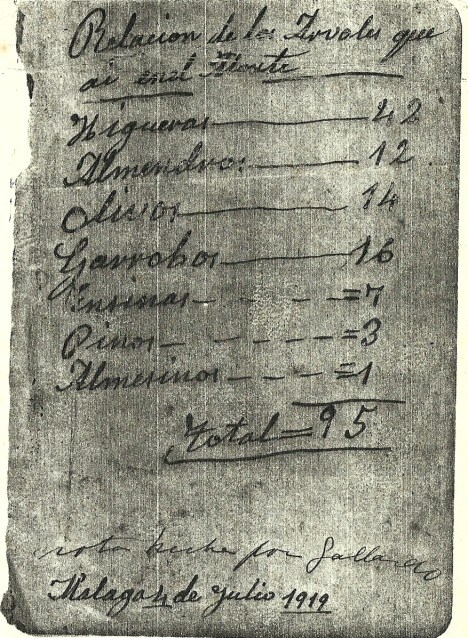 Relacion de los Arvoles que
ai enel Monte
Higueras 42
Almendros 12
Olivos 14
Garrobos 16
Ensinas - - - - =7
Pinos - - - - =3
Almesinos - - - =1
Total = 95
nota hecha por Gallardo
Malaga 4 de Julio 1919